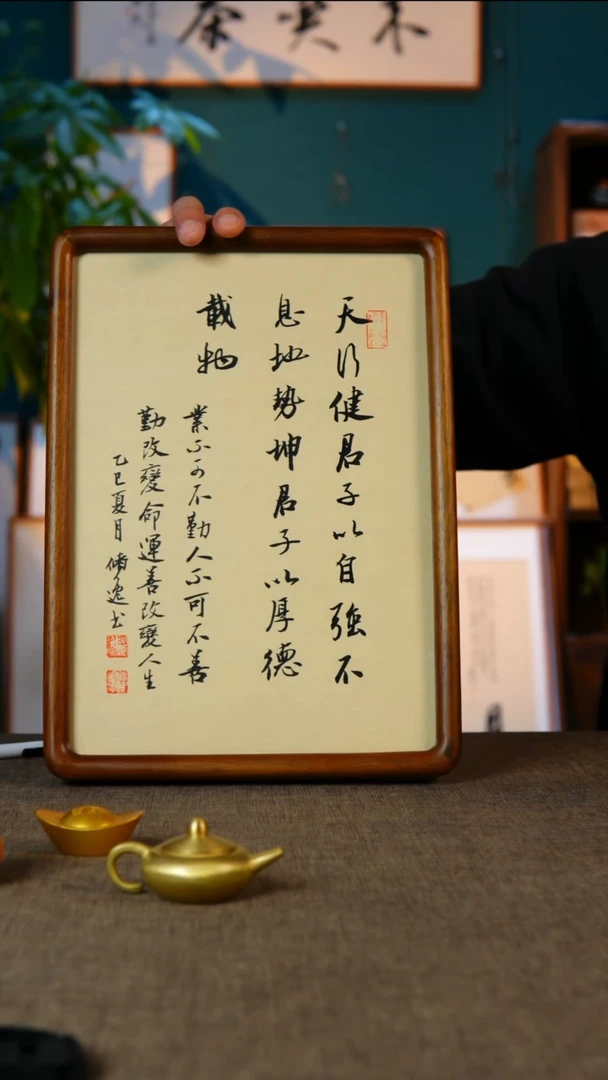 天行健君子以自強不
息地勢坤君子以厚德
載物
業不可不勤人不可不善
勤改變命運善改變人生
乙巳夏月脩逸书